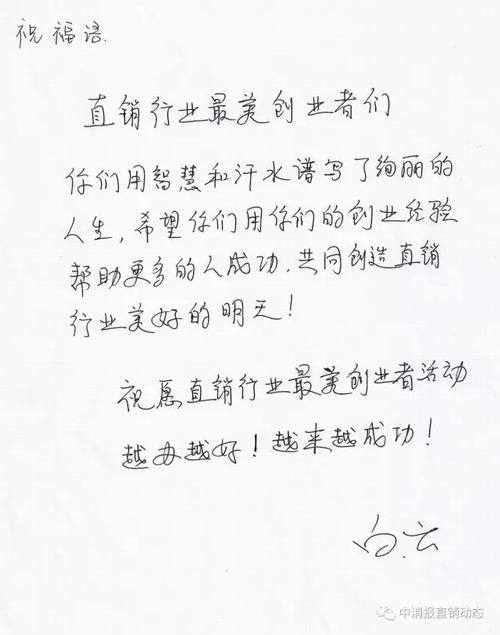 祝福语
直销行业最美创业者们
你们用智慧和汗水谱写了绚丽的
人生，希望你们用你们的创业经验
帮助更多的人成功，共同创造直销
行业美好的明天！
祝愿直销行业最美创业者活动
越办越好！越来越成功！
白云
中消报直销动态